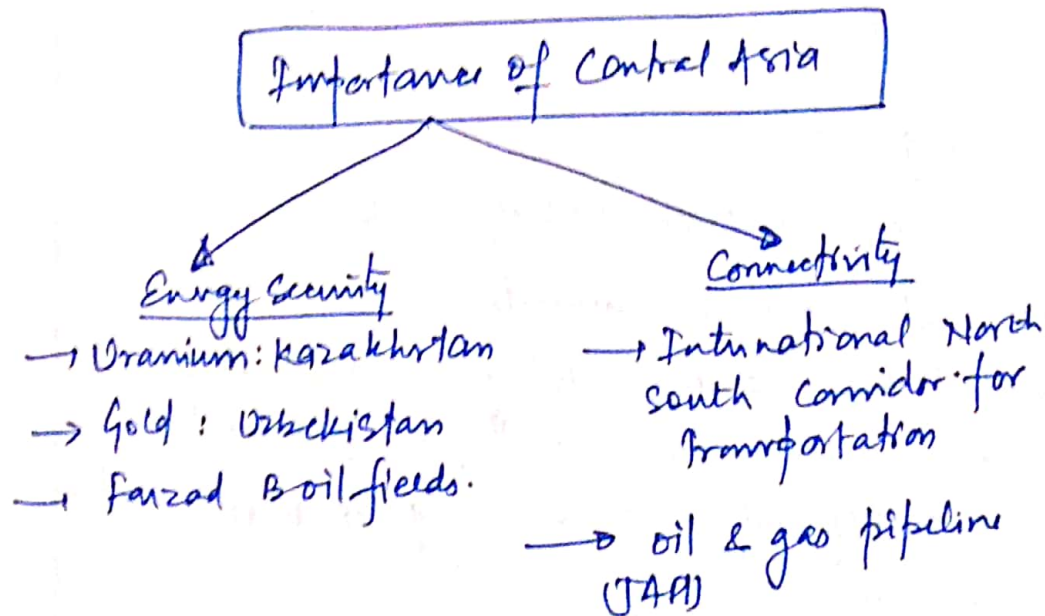 Importance of Central Asia
Energy Security
→ Uranium: Kazakhstan
→ Gold : Uzbekistan
→ Farzad B oil fields.
Connectivity
→ International North
South Corridor for
Transportation
→ oil & gas pipeline
(TAPI)